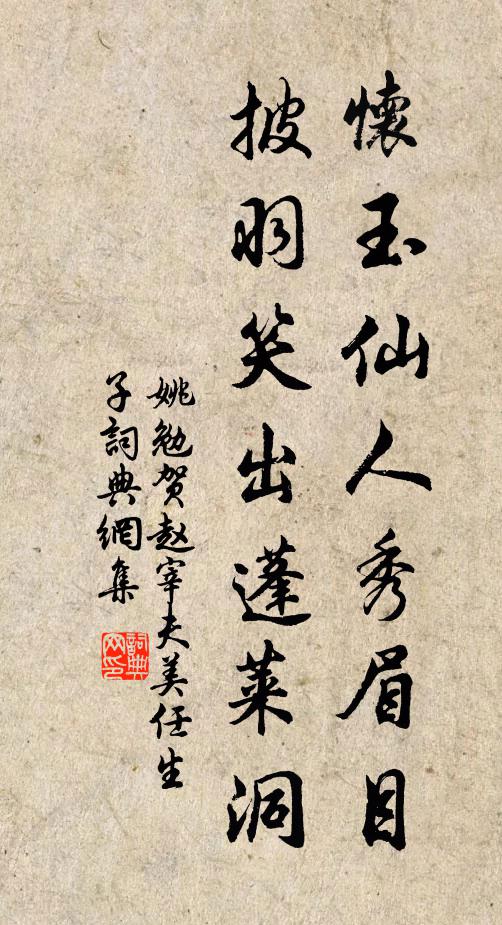 懷玉仙人秀眉目
披羽笑出蓬莱洞
姚勉贺赵宰夫美任生
子詞典網集
詞典网印